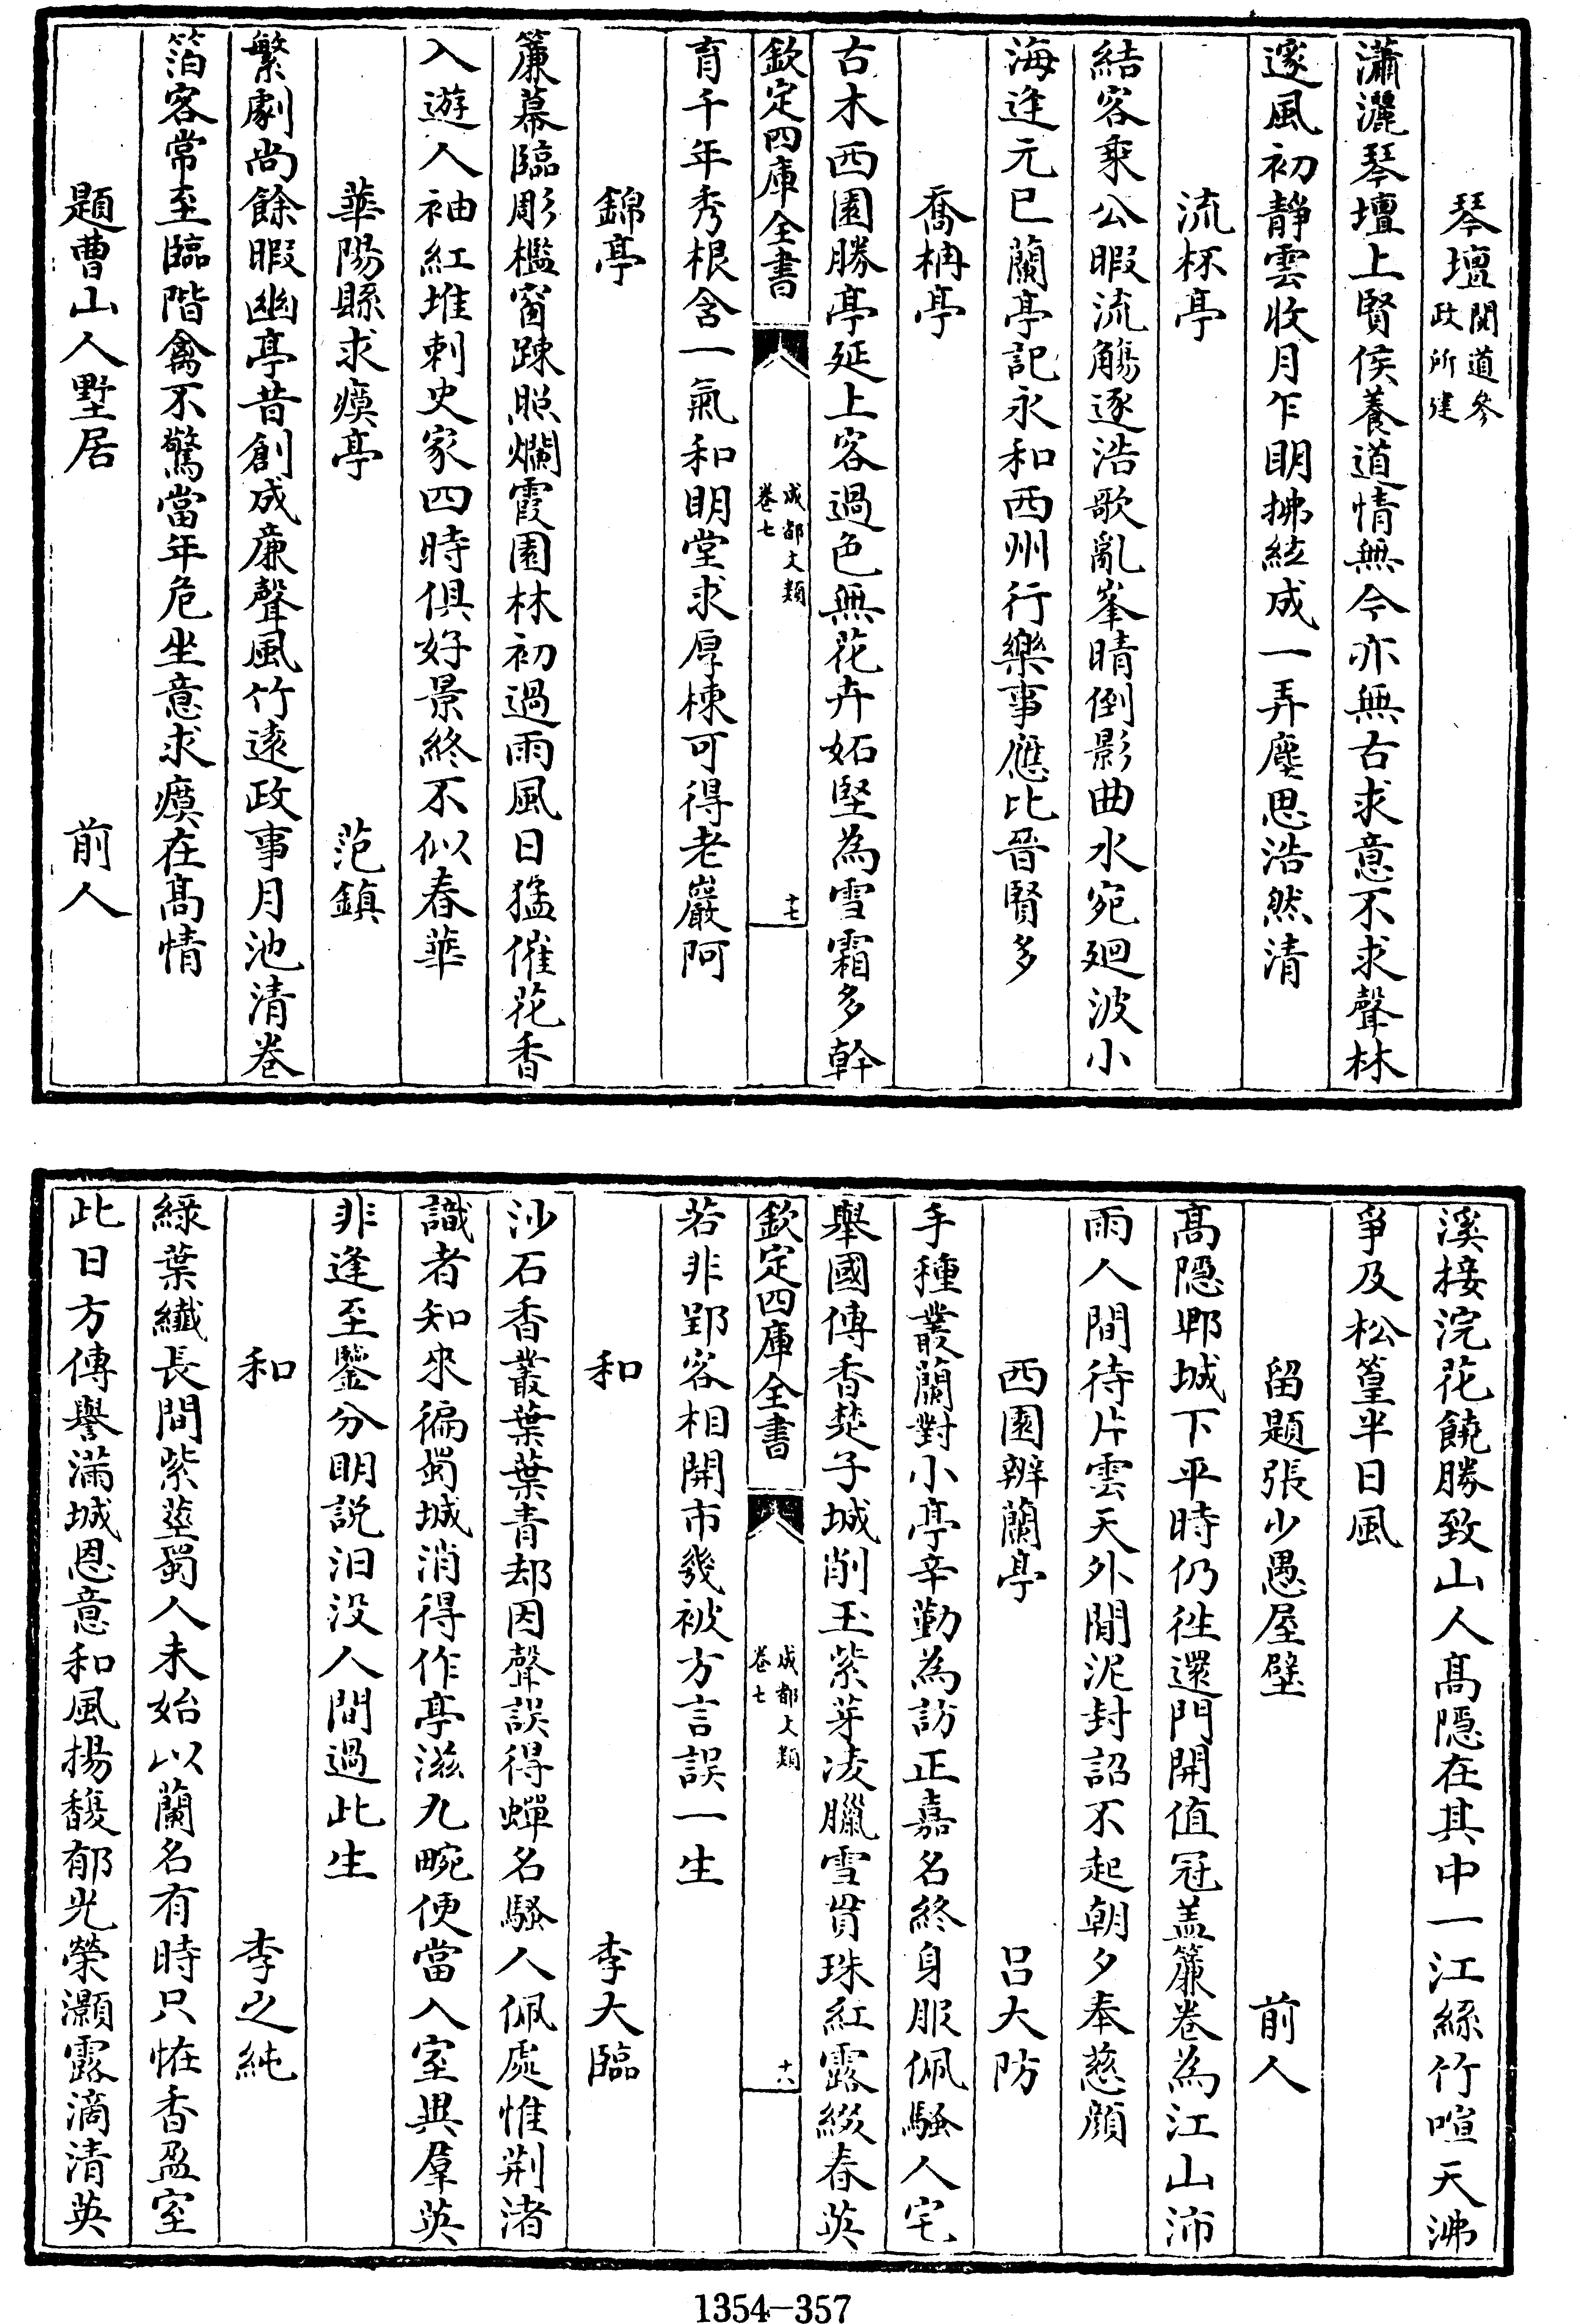 琴壇閱道參政所建
瀟灑琴壇上賢侯養道情無今亦無古求意不求聲林
邃風初靜雲收月乍明拂絃成一弄塵思浩然清
流杯亭
結客乘公暇流觴逐浩歌亂峯晴倒影曲水宛廻波小
海逢元巳蘭亭記永和西州行樂事應比晉賢多
喬柟亭
古木西園勝亭延上客過色無花卉妬堅為雪霜多幹
欽定四庫全書
成都文類
卷七
十七
育千年秀根含一氣和明堂求厚棟可得老巖阿
錦亭
簾幕臨彫檻窗踈照爛霞園林初過雨風日猛催花香
入遊人袖紅堆刺史家四時俱好景終不似春華
華陽縣求瘼亭 范鎮
繁劇尚餘暇幽亭昔創成廉聲風竹遠政事月池清卷
箔客常至臨階禽不驚當年危坐意求瘼在髙情
題曹山人墅居 前人
溪接浣花饒勝致山人髙隱在其中一江絲竹喧天沸
爭及松篁半日風
留題張少愚屋壁 前人
髙隱郫城下平時仍徃還門開值冠盖簾卷為江山沛
雨人間待片雲天外閒泥封詔不起朝夕奉慈顔
西園辨蘭亭 呂大防
手種叢蘭對小亭辛勤為訪正嘉名終身服佩騷人宅
舉國傳香楚子城削玉紫芽凌臘雪貫珠紅露綴春英
欽定四庫全書
成都文類
卷七
十八
若非郢客相開市幾被方言誤一生
和 李大臨
沙石香叢葉葉青却因聲誤得蟬名騷人佩處惟荆渚
識者知來徧蜀城消得作亭滋九畹便當入室異羣英
非逢至鑒分明説汨没人間過此生
和 李之純
綠葉纎長間紫莖蜀人未始以蘭名有時只恠香盈室
此日方傳譽滿城恩意和風揚馥郁光榮灝露滴清英
1354-357